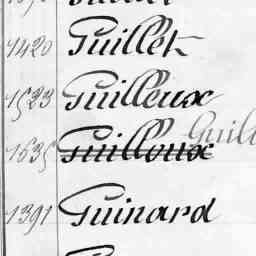 1420 Guillet
1523 Guilleux
1535 Guilloux
1391 Guinard